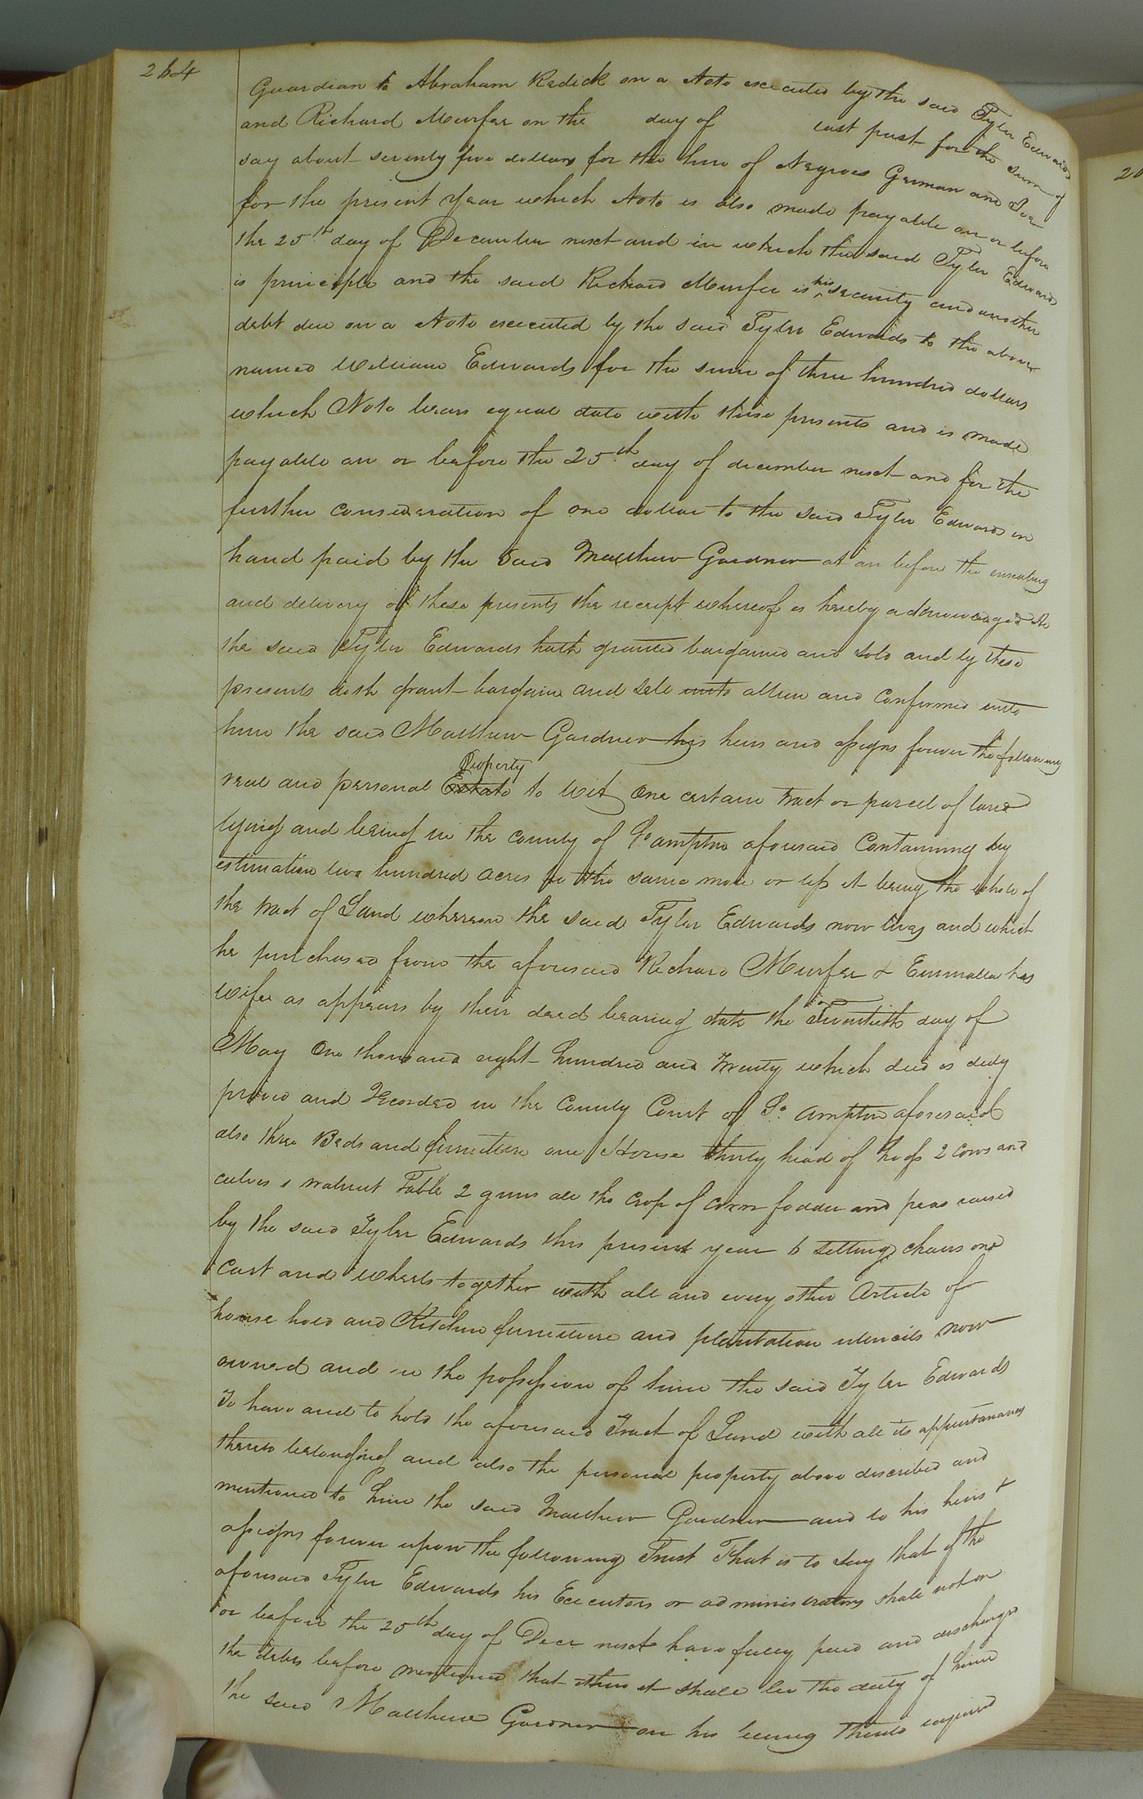 264
Guardian to Abraham Redick on a Note executed by the said Tyler Edwards
and Richard Murfee on the day of last past for the sum of
say about seventy five dollars for the hire of Negroes German and
for the present Year which Note is also made payable on or before
the 25th day of December next and in which the said Tyler Edwards
is principle and the said Richard Murfee is his security and another
debt due on a Note executed by the said Tyler Edwards to the above
named William Edwards for the sum of three hundred dollars
which Note bears equal date with these presents and is made
payable on or before the 25th day of december next and for the
further consideration of one dollar to the said Tyler Edwards in
hand paid by the said Matthew Gardner at or before the ensealing
and delivery of these presents the receipt whereof is hereby acknowledged he
the said Tyler Edwards hath granted bargained and sold and by these
presents doth grant bargain and sele unto and confirmed unto
him the said Matthew Gardner his heirs and assigns forever the following
Property
real and personal Estate to wit One certain tract or parcel of land
lying and being in the county of So ampton aforesaid Containing by
estimation two hundred acres be the same more or less it being the whole of
the tract of Land whereon the said Tyler Edwards now lives and which
he purchased from the aforesaid Richard Murfee & his
wife as appears by their deed bearing date the Twentieth day of
May One thousand eight hundred and twenty which deed is duly
proved and Recorded in the County Court of So ampton aforesaid
also three Beds and furniture one Horse thirty head of hogs 2 cows and
calves 1 walnut Table 2 guns all the crop of corn fodder and peas raised
by the said Tyler Edwards this present year 6 setting chairs one
cart and wheels together with all and every other Article of
house hold and Kitchen furniture and plantation utencils now
owned and in the possession of him the said Tyler Edwards
To have and to hold the aforesaid Tract of Land with all its appurtanances
thereto belonging and also the personal property above described and
mentioned to him the said Matthew Gardner and to his heirs &
assigns forever upon the following Trust That is to say that if the
aforesaid Tyler Edwards his Executors or administrators shall not on
or before the 25th day of Decr next have fully paid and discharge
the debts before mentioned that then it shall be the duty of him
the said Matthew Gardner on his being thereto required